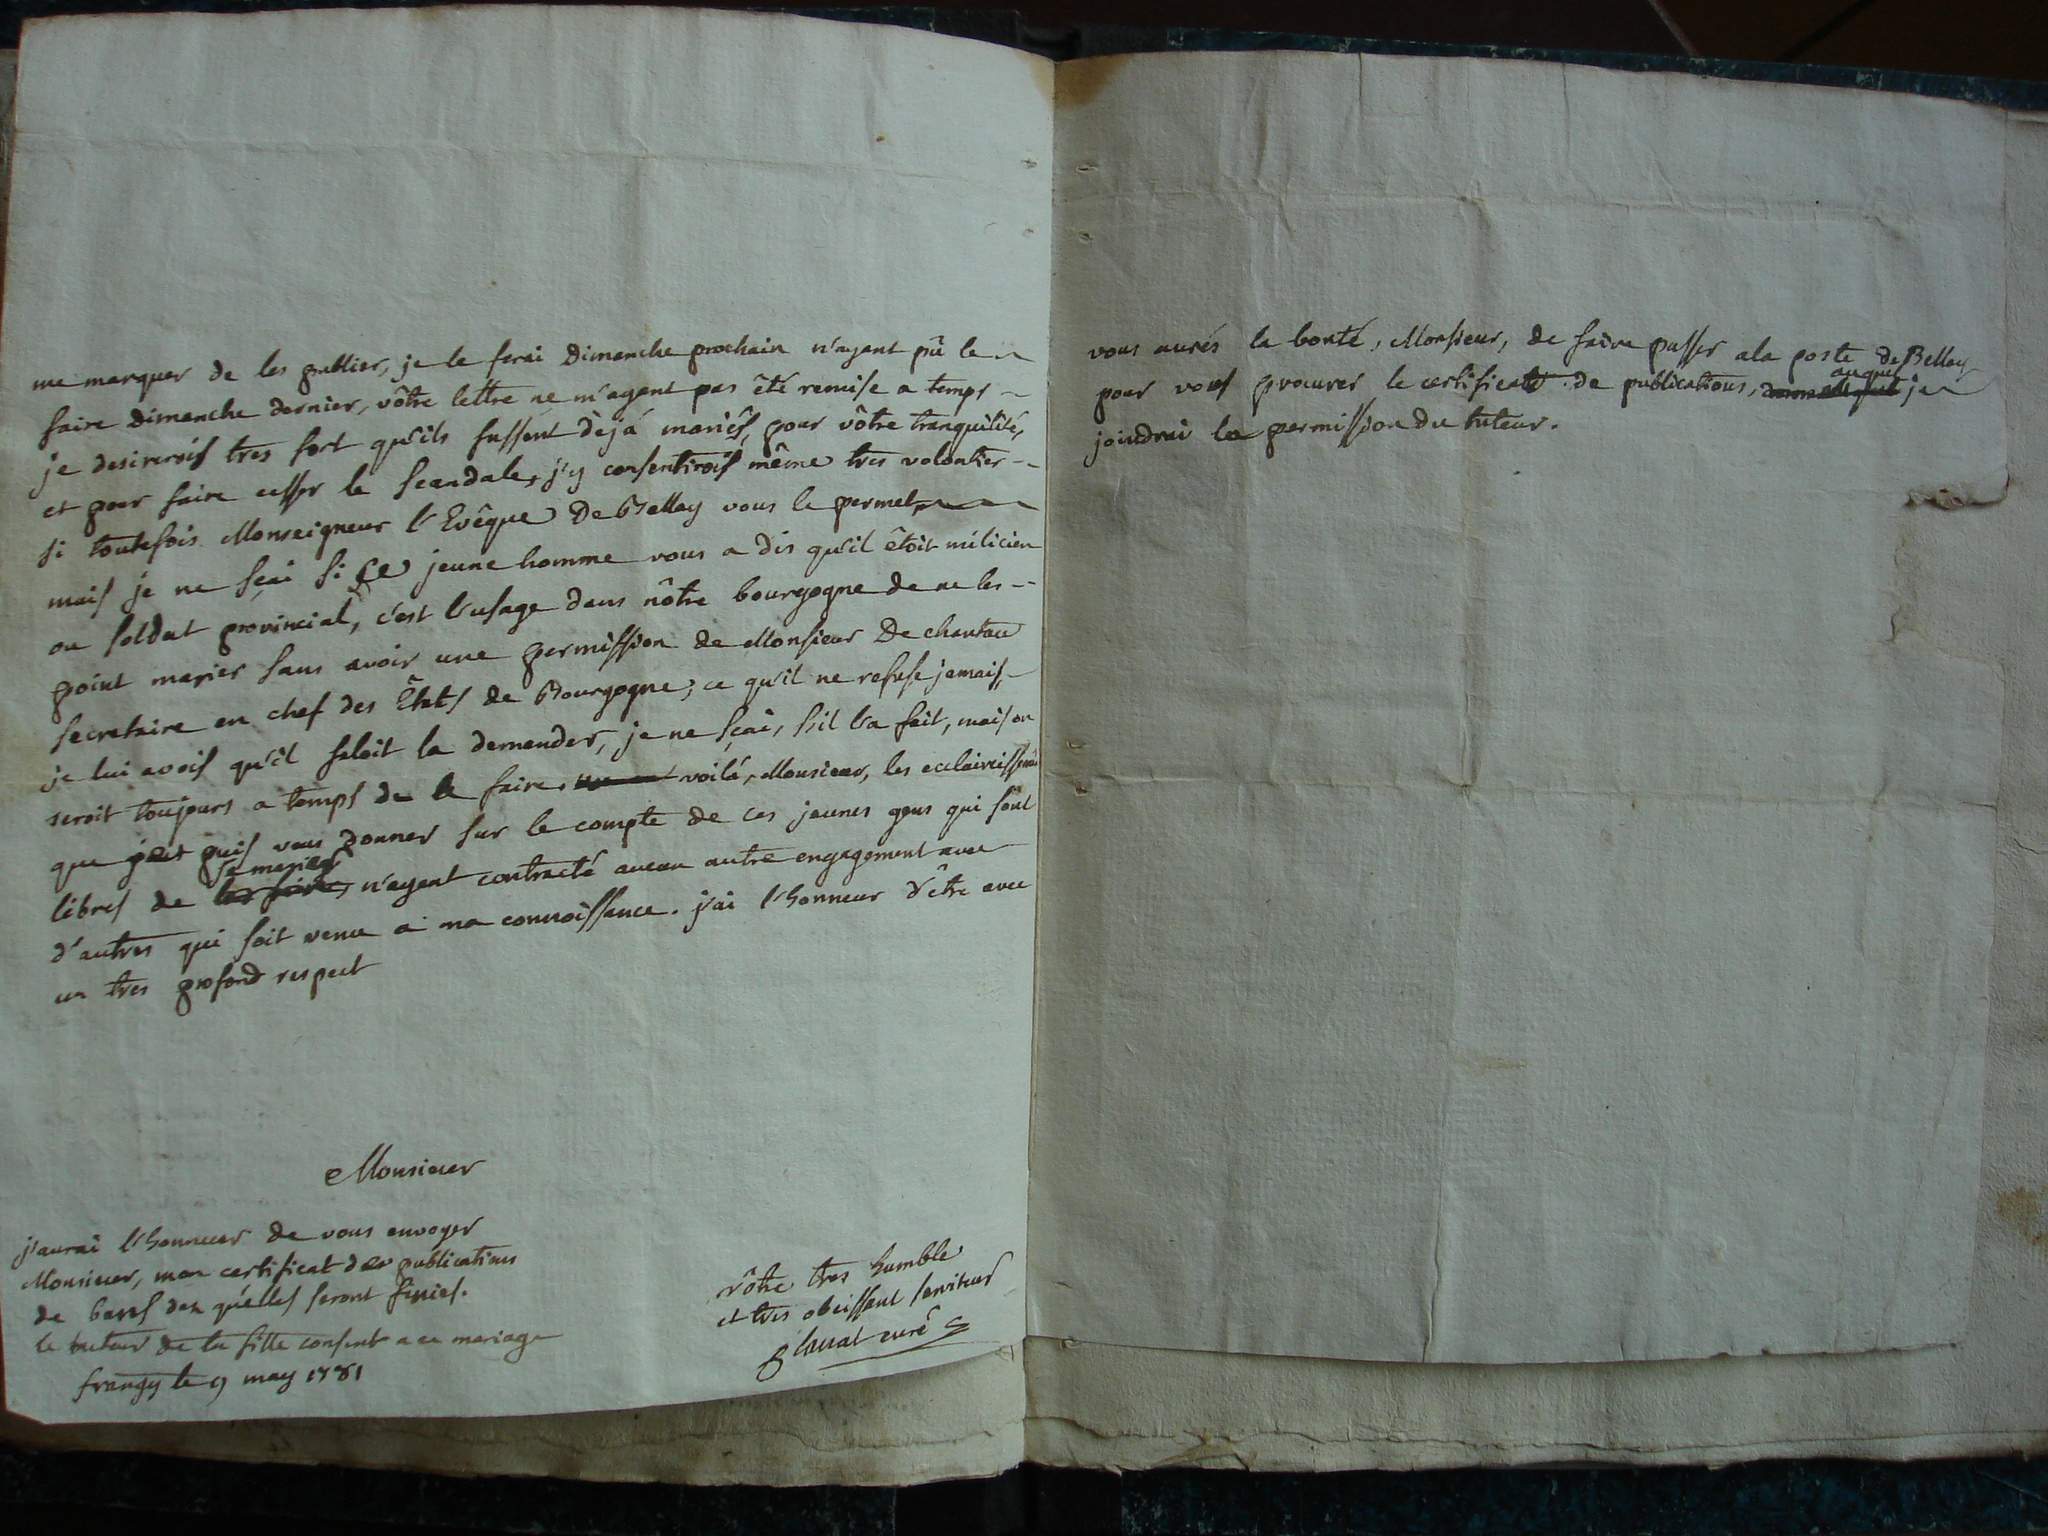 me marquer de les publier, je le ferai Dimanche prochain n'ayent pû le
faire Dimanche dernier, vôtre lettre ne m'ayent pas êté remise a temps
je desirerois tres fort qu'ils fussent dejá mariés, pour vôtre tranquilité,
et pour faire cesser le scandale, j'y consentirois même tres volontier
si toutefois Monseigneur l'Evêque De Bellay vous le permet,
mais je ne sçai si ce jeune homme vous a dis qu'il êtoit milicien
ou soldat provincial, c'est l'usage dans nôtre bourgogne de ne les
point marier sans avoir une permission de Monsieur De chantau
secretaire en chef des Êtats de Bourgogne; ce qu'il ne refuse jamais,
je lui avois qu'il faloit la demander, je ne sçai, s'il l'a fait, mais on
seroit toujours a temps de le faire, voilá, Monsieur, les ecclaircissemens
que puis vous donner sur le compte de ces jeunes gens qui sont
libres de se marier n'ayent contracté aucun autre engagement avec
d'autres qui soit venu a ma connoissance. j'ai l'honneur d'être avec
un tres profond respect
Monsieur
j'aurai l'honneur de vous envoyer
Monsieur, mon certificat des publications
de bans dez qu'elles seront finies.
le tuteur de la fille consent a ce mariage
frangy le 9 may 1781
vôtre tres humble
et tres obeissant serviteur
curé
vous aurés la bonté, Monsieur, de faire passer a la poste de Bellay
pour vous procurer le certificat de publications, auquel je
joindrai la permission du tuteur.